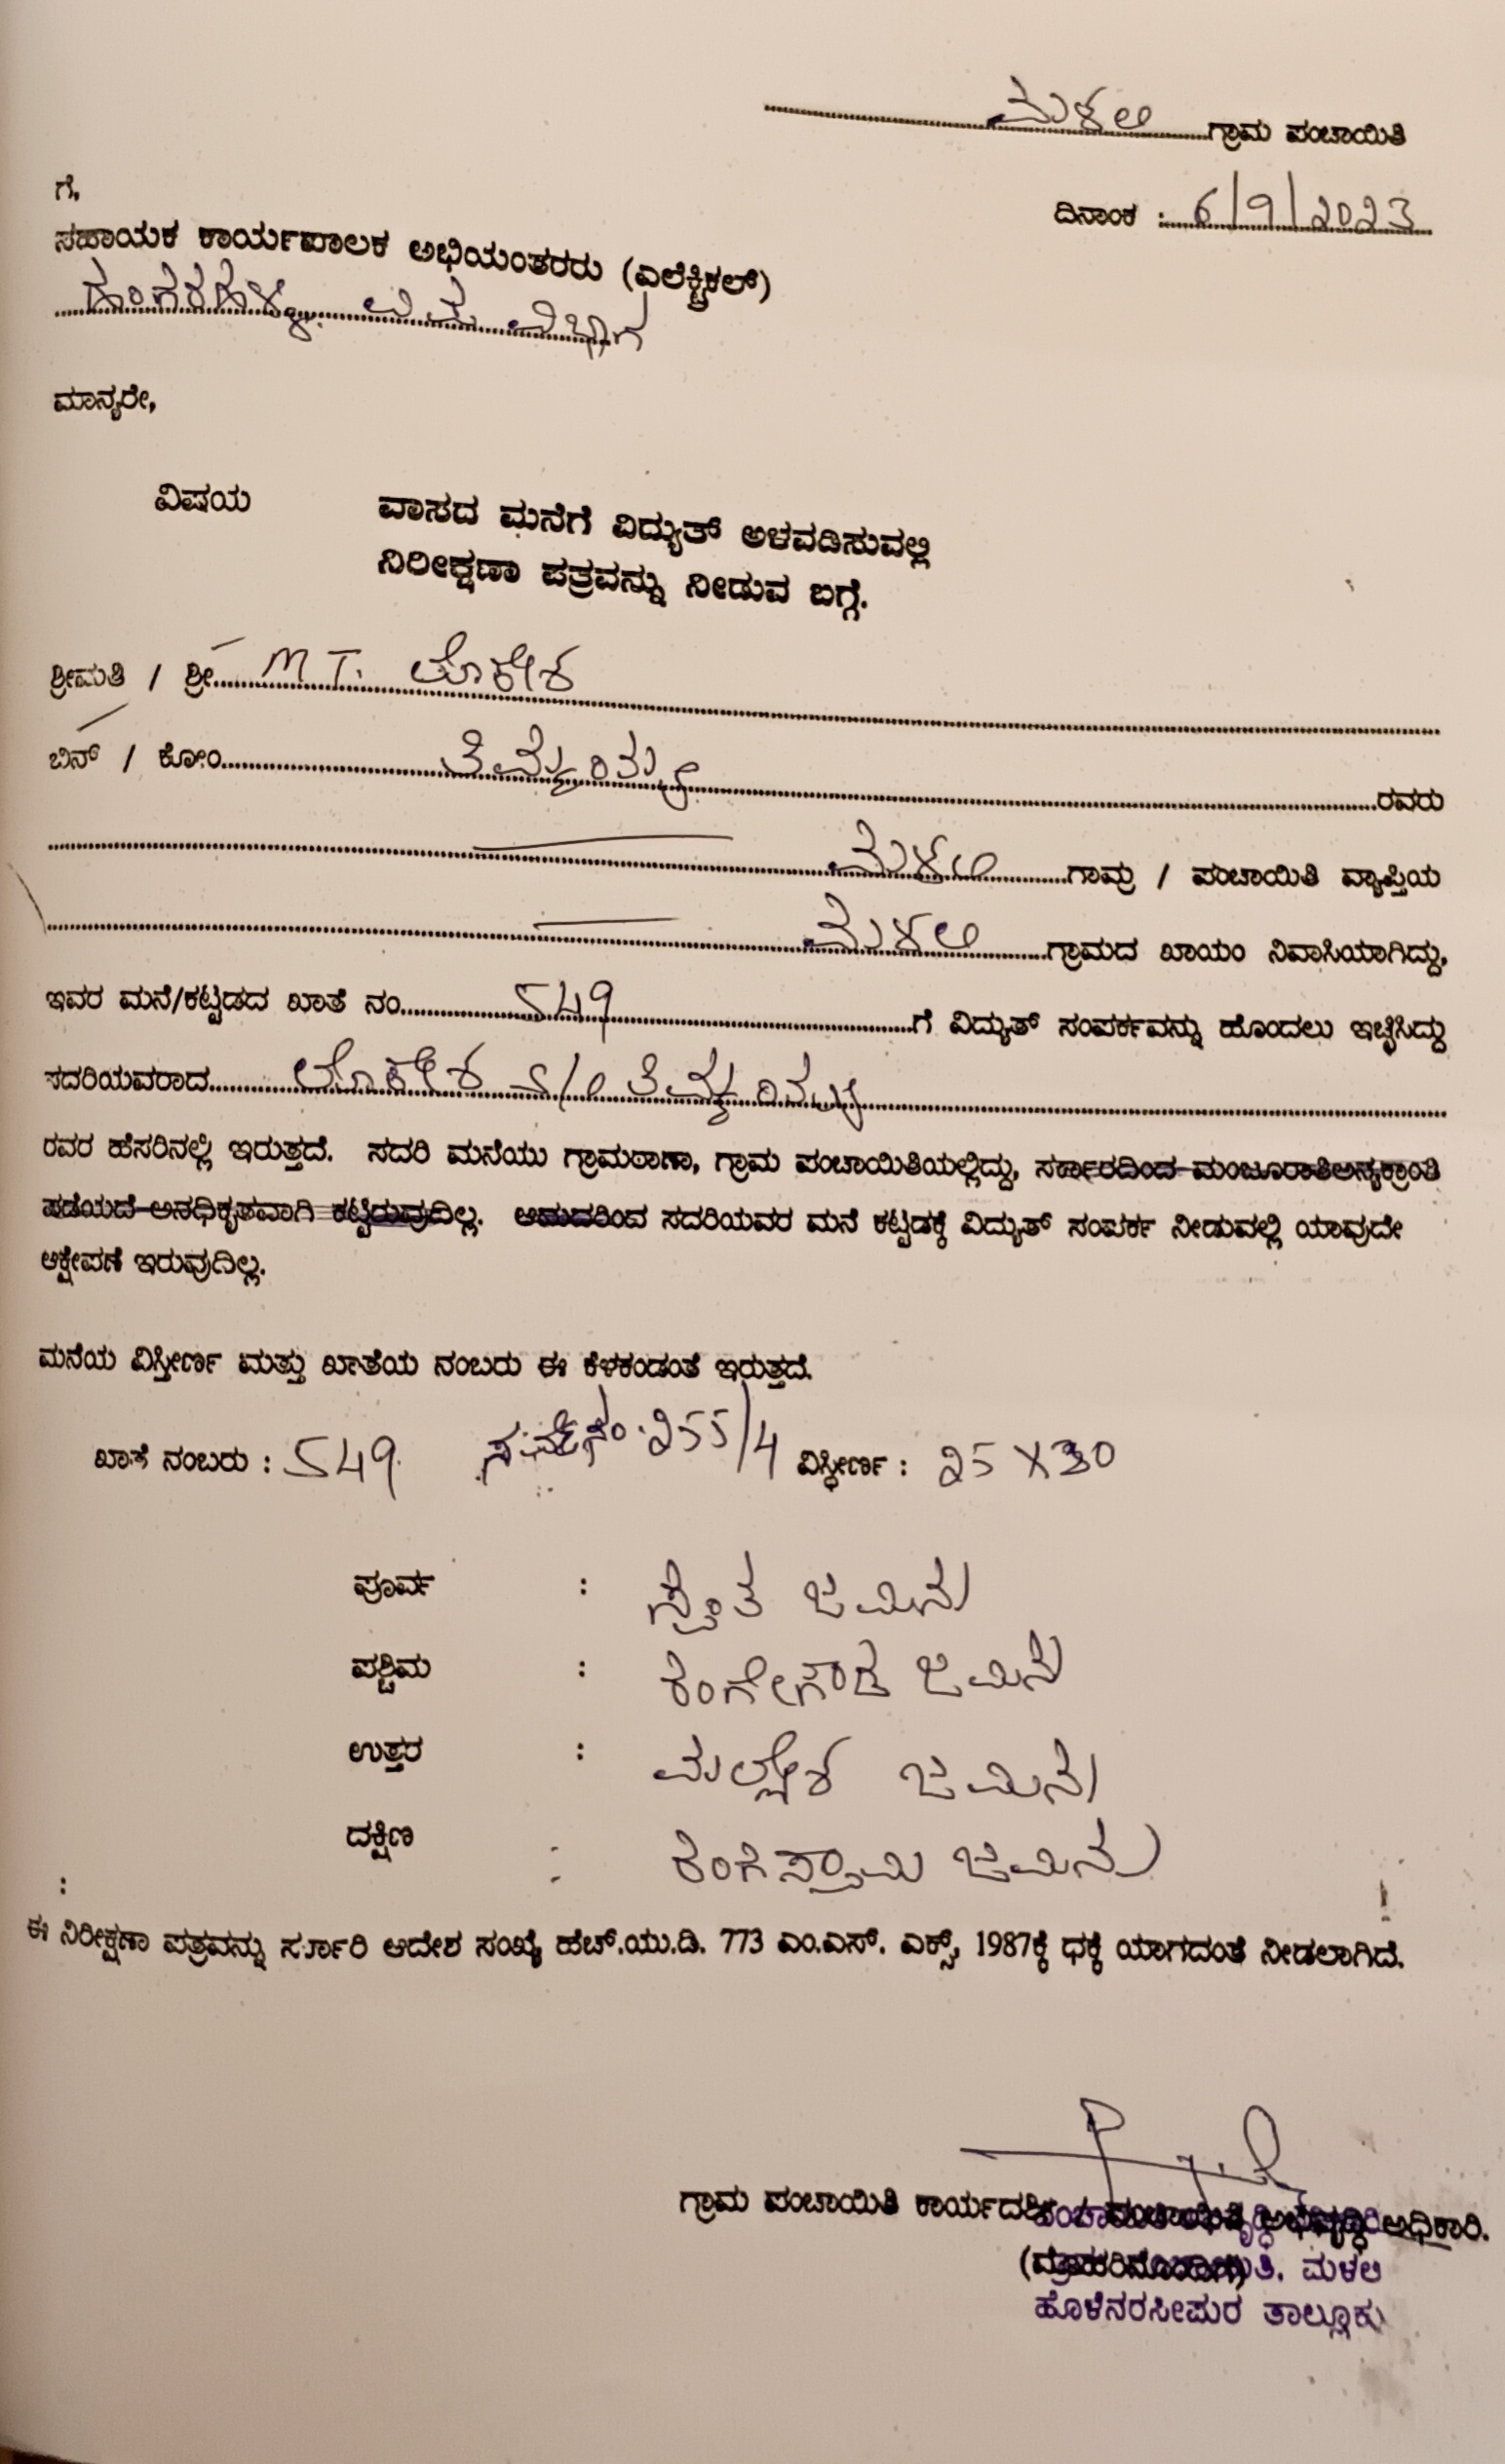 ಮಳಲಿ ಗ್ರಾಮ ಪಂಚಾಯಿತಿ
ದಿನಾಂಕ : 6/9/2023
ಗೆ,
ಸಹಾಯಕ ಕಾರ್ಯಪಾಲಕ ಅಭಿಯಂತರರು (ಎಲೆಕ್ಟ್ರಿಕಲ್)
ವಿಭಾಗ
ಮಾನ್ಯರೇ,
ವಿಷಯ ವಾಸದ ಮನೆಗೆ ವಿದ್ಯುತ್ ಅಳವಡಿಸುವಲ್ಲಿ
ನಿರೀಕ್ಷಣಾ ಪತ್ರವನ್ನು ನೀಡುವ ಬಗ್ಗೆ.
ಶ್ರೀಮತಿ / ಶ್ರೀ M T. ಲೋಕೇಶ
ಬಿನ್ / ಕೋಂ ರವರು
ಮಳಲಿ ಗಾಮ್ರ / ಪಂಚಾಯಿತಿ ವ್ಯಾಪ್ತಿಯ
ಮಳಲಿ ಗ್ರಾಮದ ಖಾಯಂ ನಿವಾಸಿಯಾಗಿದ್ದು,
ಇವರ ಮನೆ/ಕಟ್ಟಡದ ಖಾತೆ ನಂ. 549 ಗೆ ವಿದ್ಯುತ್ ಸಂಪರ್ಕವನ್ನು ಹೊಂದಲು ಇಚ್ಛಿಸಿದ್ದು
ಸದರಿಯವರಾದ ಲೋಕೇಶ S/o
ರವರ ಹೆಸರಿನಲ್ಲಿ ಇರುತ್ತದೆ. ಸದರಿ ಮನೆಯು ಗ್ರಾಮಠಾಣಾ, ಗ್ರಾಮ ಪಂಚಾಯಿತಿಯಲ್ಲಿದ್ದು, ಸರ್ಕಾರದಿಂದ ಮಂಜೂರಾತಿಅನ್ಯಕ್ರಾಂತಿ
ಪಡೆಯದೆ ಅನಧಿಕೃತವಾಗಿ ಕಟ್ಟಿರುವುದಿಲ್ಲ. ಆದುದರಿಂದ ಸದರಿಯವರ ಮನೆ ಕಟ್ಟಡಕ್ಕೆ ವಿದ್ಯುತ್ ಸಂಪರ್ಕ ನೀಡುವಲ್ಲಿ ಯಾವುದೇ
ಆಕ್ಷೇಪಣೆ ಇರುವುದಿಲ್ಲ.
ಮನೆಯ ವಿಸ್ತೀರ್ಣ ಮತ್ತು ಖಾತೆಯ ನಂಬರು ಈ ಕೆಳಕಂಡಂತೆ ಇರುತ್ತದೆ.
ಖಾತೆ ನಂಬರು : 549 ಸ.ರ್ವೆ.ನಂ.255/4 ವಿಸ್ತೀರ್ಣ : 25 X 30
ಪೂರ್ವ : ಸ್ವಂತ ಜಮೀನು
ಪಶ್ಚಿಮ : ರಂಗೇಗೌಡ ಜಮೀನು
ಉತ್ತರ : ಮಲ್ಲೇಶ ಜಮೀನು
ದಕ್ಷಿಣ : ರಂಗಸ್ವಾಮಿ ಜಮೀನು
:
ಈ ನಿರೀಕ್ಷಣಾ ಪತ್ರವನ್ನು ಸರ್ಕಾರಿ ಆದೇಶ ಸಂಖ್ಯೆ ಹೆಚ್.ಯು.ಡಿ. 773 ಎಂ.ಎಸ್. ಎಕ್ಸ್, 1987ಕ್ಕೆ ಧಕ್ಕೆ ಯಾಗದಂತೆ ನೀಡಲಾಗಿದೆ.
ಗ್ರಾಮ ಪಂಚಾಯಿತಿ ಕಾರ್ಯದರ್ಶಿ / ಪಂಚಾಯಿತಿ ಅಭಿವೃದ್ಧಿ ಅಧಿಕಾರಿ.
(ಮೊಹರಿನೊಂದಿಗೆ) ಮಳಲಿ
ಹೊಳೆನರಸೀಪುರ ತಾಲ್ಲೂಕು